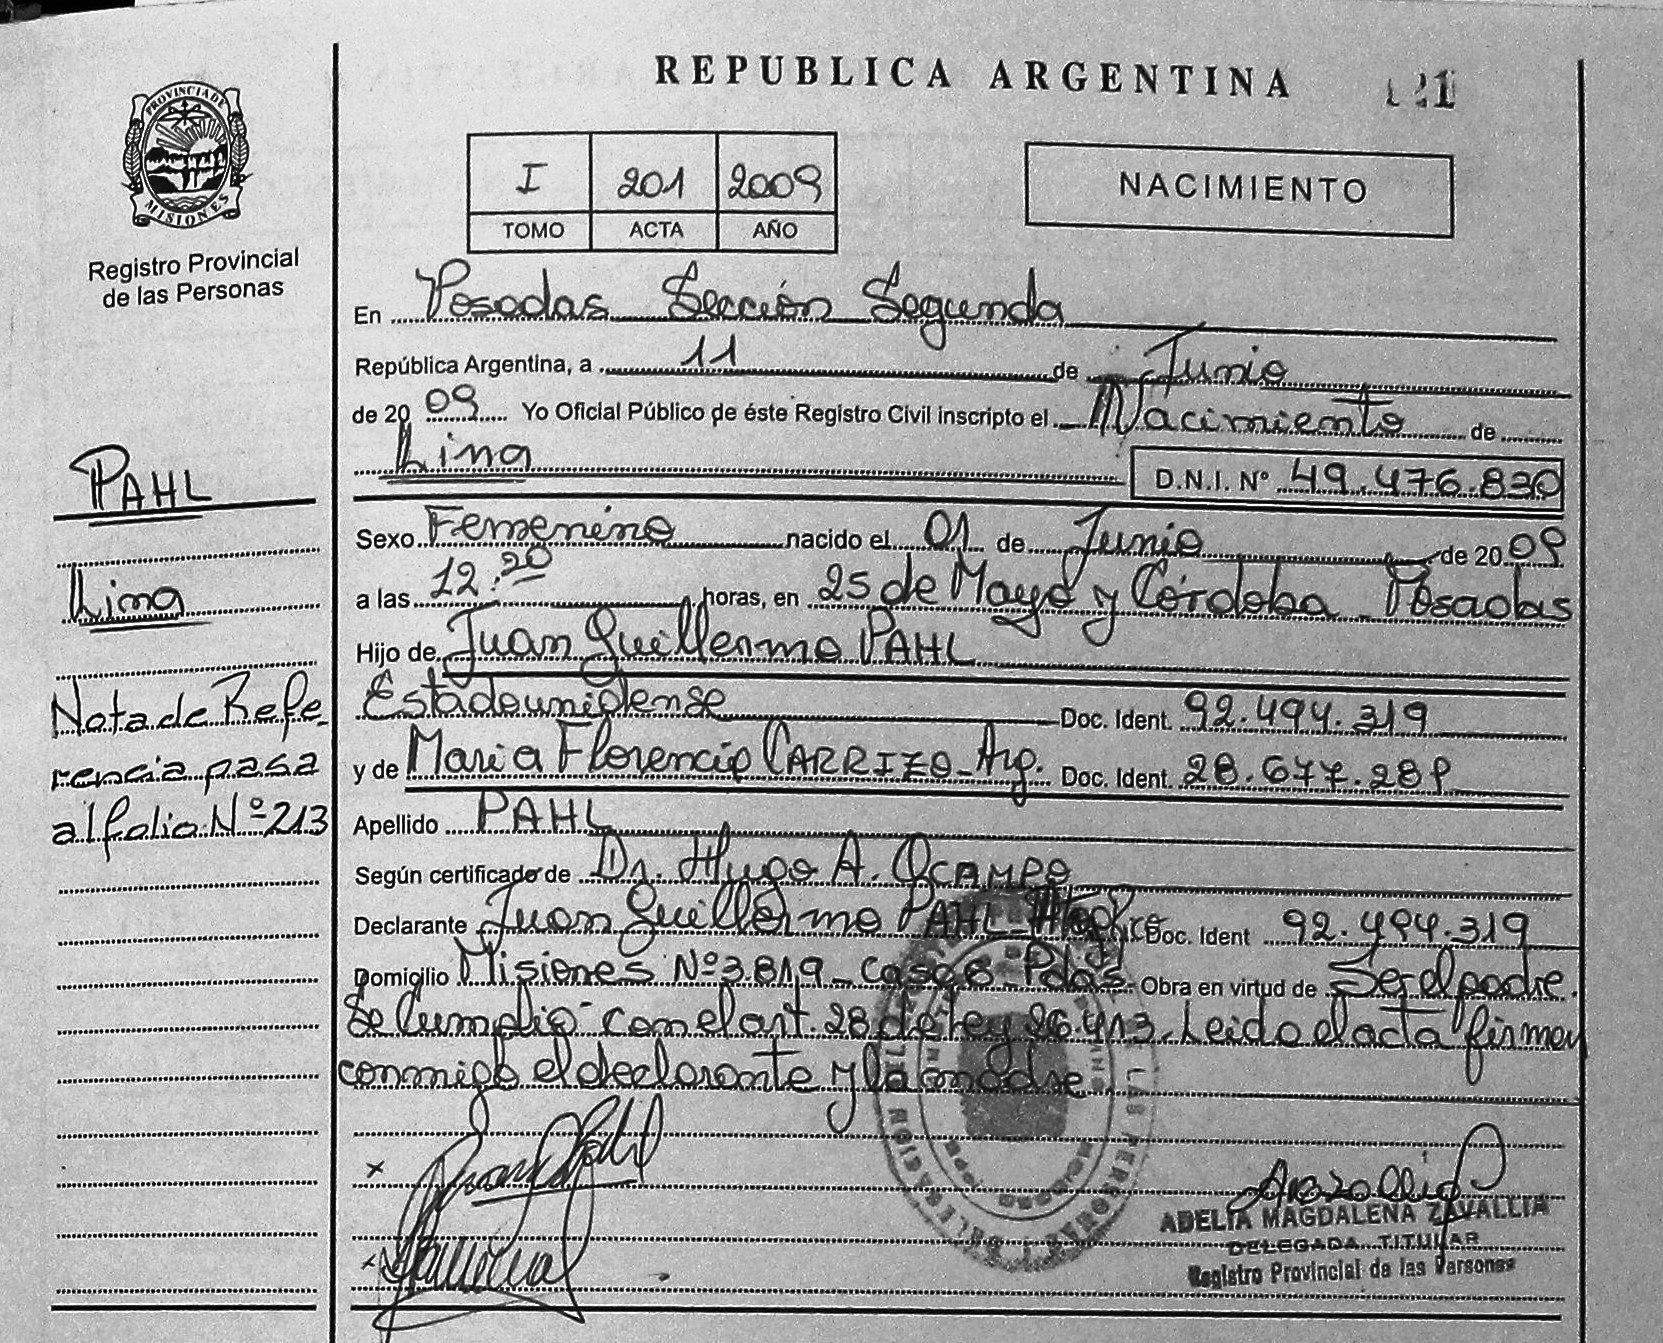 REPUBLICA ARGENTINA
PROVINCIA DE
MISIONES
Registro Provincial
de las Personas
I 201 2009
TOMO ACTA AÑO
NACIMIENTO
En Posadas Sección Segunda
República Argentina, a 11 de Junio
de 2009 Yo Oficial Público de éste Registro Civil inscripto el Nacimiento de
Lina D.N.I. Nº 49.476.830
PAHL
Lina
Nota de Refe-
rencia pasa
al folio Nº 213
Sexo Femenino nacido el 01 de Junio de 2009
a las 12:20 horas, en 25 de Mayo y Córdoba - Posadas
Hijo de Juan Guillermo PAHL
Estadounidense Doc. Ident. 92.494.319
y de Maria Florencia CARRIZO - Arg. Doc. Ident. 28.677.289
Apellido PAHL
Según certificado de Dr. Hugo A. OCAMPO
Declarante Juan Guillermo PAHL Doc. Ident 92.494.319
Domicilio Misiones Nº 3.819 - Casa 8 - Pdas. Obra en virtud de Ser el padre.
Se Cumplió con el art. 28 de Ley 26.413. Leido el acta firman
conmigo el declarante y la madre
x
x
ADELIA MAGDALENA ZAVALLIA
DELEGADA TITULAR
Registro Provincial de las Personas